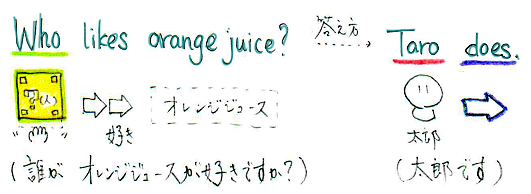 Who likes orange juice? 答え方 Taro does.
?(人)
好き
オレンジジュース
太郎
(誰が オレンジジュースが好きですか?) (太郎です)